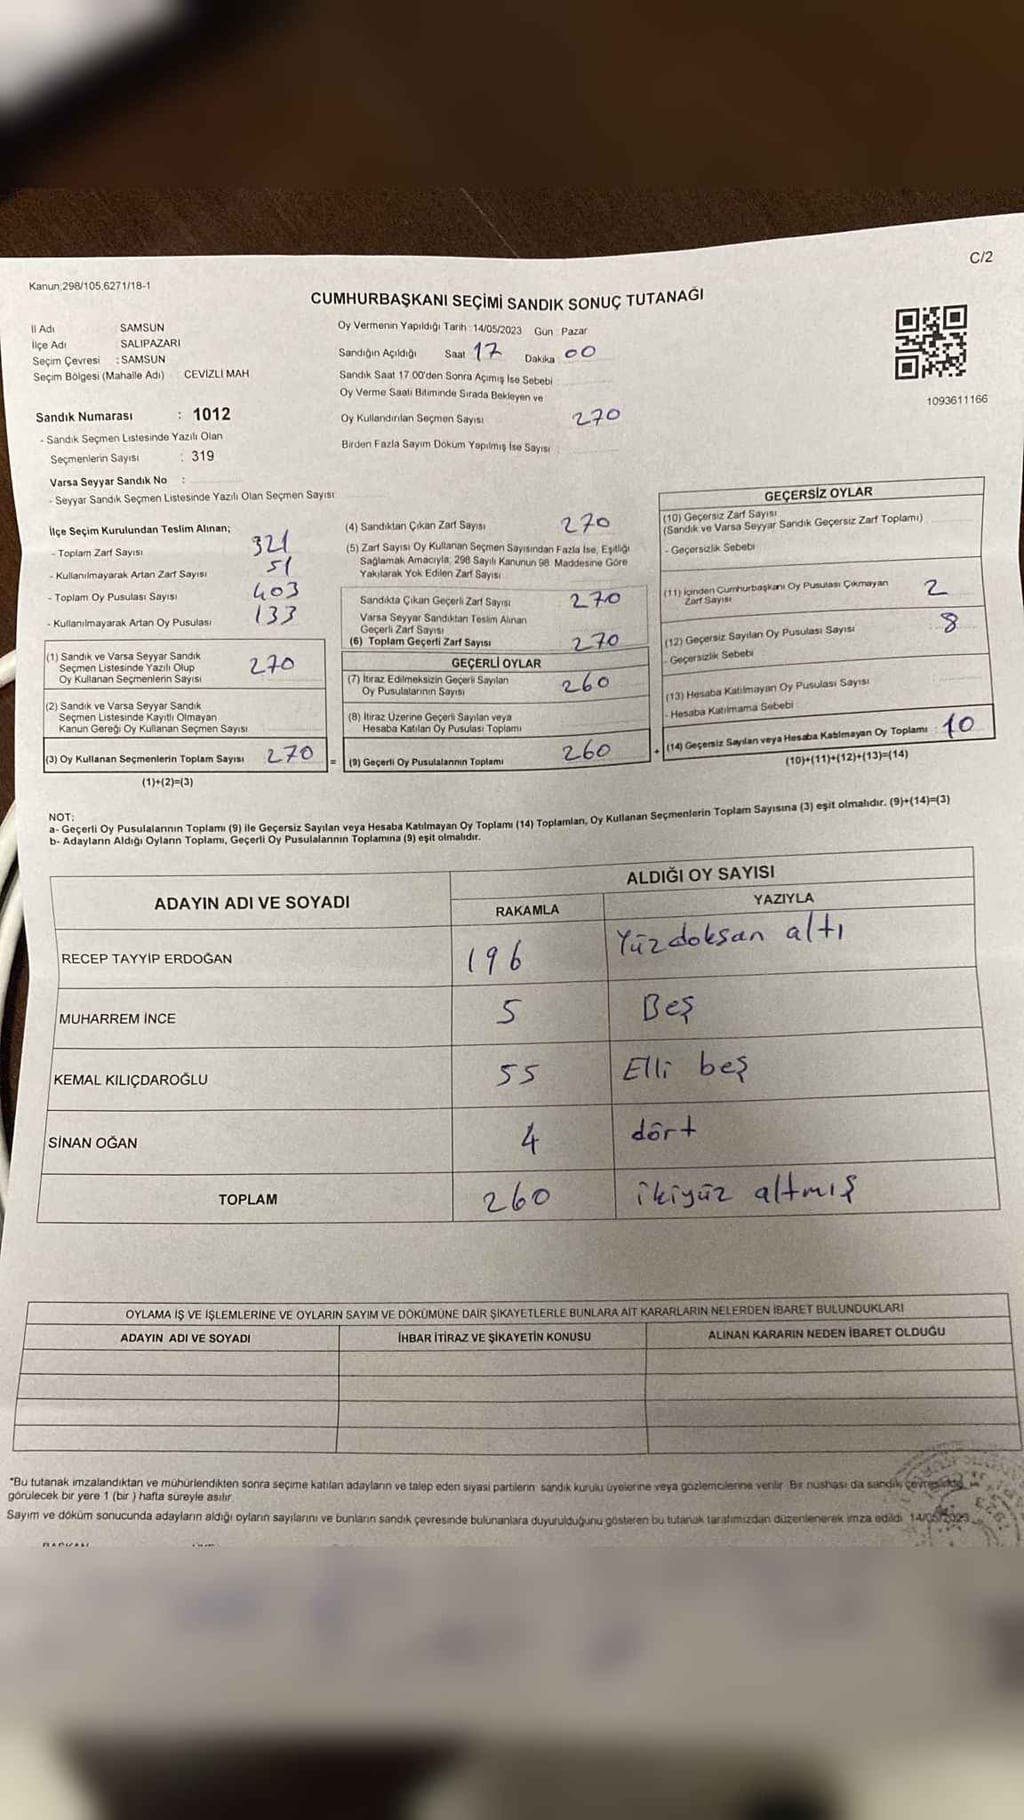 C/2
Kanun 298/105,6271/18-1
CUMHURBAŞKANI SEÇİMİ SANDIK SONUÇ TUTANAĞI
İl Adı SAMSUN
İlçe Adı SALIPAZARI
Seçim Çevresi : SAMSUN
Seçim Bölgesi (Mahalle Adı) CEVİZLİ MAH.
Sandık Numarası : 1012
- Sandık Seçmen Listesinde Yazılı Olan
Seçmenlerin Sayısı : 319
Varsa Seyyar Sandık No :
- Seyyar Sandık Seçmen Listesinde Yazılı Olan Seçmen Sayısı
Oy Vermenin Yapıldığı Tarih 14/05/2023 Gün Pazar
Sandığın Açıldığı Saat 17 Dakika 00
Sandık Saat 17.00'den Sonra Açımış İse Sebebi
Oy Verme Saati Bitiminde Sırada Bekleyen ve
Oy Kullandırılan Seçmen Sayısı 270
Birden Fazla Sayım Döküm Yapılmış İse Sayısı
1093611166
İlçe Seçim Kurulundan Teslim Alınan;
- Toplam Zarf Sayısı 321
- Kullanılmayarak Artan Zarf Sayısı 51
- Toplam Oy Pusulası Sayısı 403
- Kullanılmayarak Artan Oy Pusulası 133
(1) Sandık ve Varsa Seyyar Sandık
Seçmen Listesinde Yazılı Olup
Oy Kullanan Seçmenlerin Sayısı 270
(2) Sandık ve Varsa Seyyar Sandık
Seçmen Listesinde Kayıtlı Olmayan
Kanun Gereği Oy Kullanan Seçmen Sayısı
(3) Oy Kullanan Seçmenlerin Toplam Sayısı 270
(1)+(2)=(3)
(4) Sandıktan Çıkan Zarf Sayısı 270
(5) Zarf Sayısı Oy Kullanan Seçmen Sayısından Fazla İse, Eşitliği
Sağlamak Amacıyla, 298 Sayılı Kanunun 98. Maddesine Göre
Yakılarak Yok Edilen Zarf Sayısı
Sandıkta Çıkan Geçerli Zarf Sayısı 270
Varsa Seyyar Sandıktan Teslim Alınan
Geçerli Zarf Sayısı
(6) Toplam Geçerli Zarf Sayısı 270
GEÇERLİ OYLAR
(7) İtiraz Edilmeksizin Geçerli Sayılan
Oy Pusulalarının Sayısı 260
(8) İtiraz Üzerine Geçerli Sayılan veya
Hesaba Katılan Oy Pusulası Toplamı
= (9) Geçerli Oy Pusulalarının Toplamı 260
GEÇERSİZ OYLAR
(10) Geçersiz Zarf Sayısı
(Sandık ve Varsa Seyyar Sandık Geçersiz Zarf Toplamı)
- Geçersizlik Sebebi
(11) İçinden Cumhurbaşkanı Oy Pusulası Çıkmayan
Zarf Sayısı 2
(12) Geçersiz Sayılan Oy Pusulası Sayısı 8
- Geçersizlik Sebebi
(13) Hesaba Katılmayan Oy Pusulası Sayısı
- Hesaba Katılmama Sebebi
+ (14) Geçersiz Sayılan veya Hesaba Katılmayan Oy Toplamı : 10
(10)+(11)+(12)+(13)=(14)
NOT:
a- Geçerli Oy Pusulalarının Toplamı (9) ile Geçersiz Sayılan veya Hesaba Katılmayan Oy Toplamı (14) Toplamları, Oy Kullanan Seçmenlerin Toplam Sayısına (3) eşit olmalıdır. (9)+(14)=(3)
b- Adayların Aldığı Oyların Toplamı, Geçerli Oy Pusulalarının Toplamına (9) eşit olmalıdır.
ADAYIN ADI VE SOYADI ALDIĞI OY SAYISI
RAKAMLA YAZIYLA
RECEP TAYYİP ERDOĞAN 196 Yüzdoksan altı
MUHARREM İNCE 5 Beş
KEMAL KILIÇDAROĞLU 55 Elli beş
SİNAN OĞAN 4 dört
TOPLAM 260 ikiyüz altmış
OYLAMA İŞ VE İŞLEMLERİNE VE OYLARIN SAYIM VE DÖKÜMÜNE DAİR ŞİKAYETLERLE BUNLARA AİT KARARLARIN NELERDEN İBARET BULUNDUKLARI
ADAYIN ADI VE SOYADI İHBAR İTİRAZ VE ŞİKAYETİN KONUSU ALINAN KARARIN NEDEN İBARET OLDUĞU
*Bu tutanak imzalandıktan ve mühürlendikten sonra seçime katılan adayların ve talep eden siyasi partilerin sandık kurulu üyelerine veya gözlemcilerine verilir. Bir nüshası da sandık çevresinde
görülecek bir yere 1 (bir) hafta süreyle asılır.
Sayım ve döküm sonucunda adayların aldığı oyların sayılarını ve bunların sandık çevresinde bulunanlara duyurulduğunu gösteren bu tutanak tarafımızdan düzenlenerek imza edildi. 14/05/2023